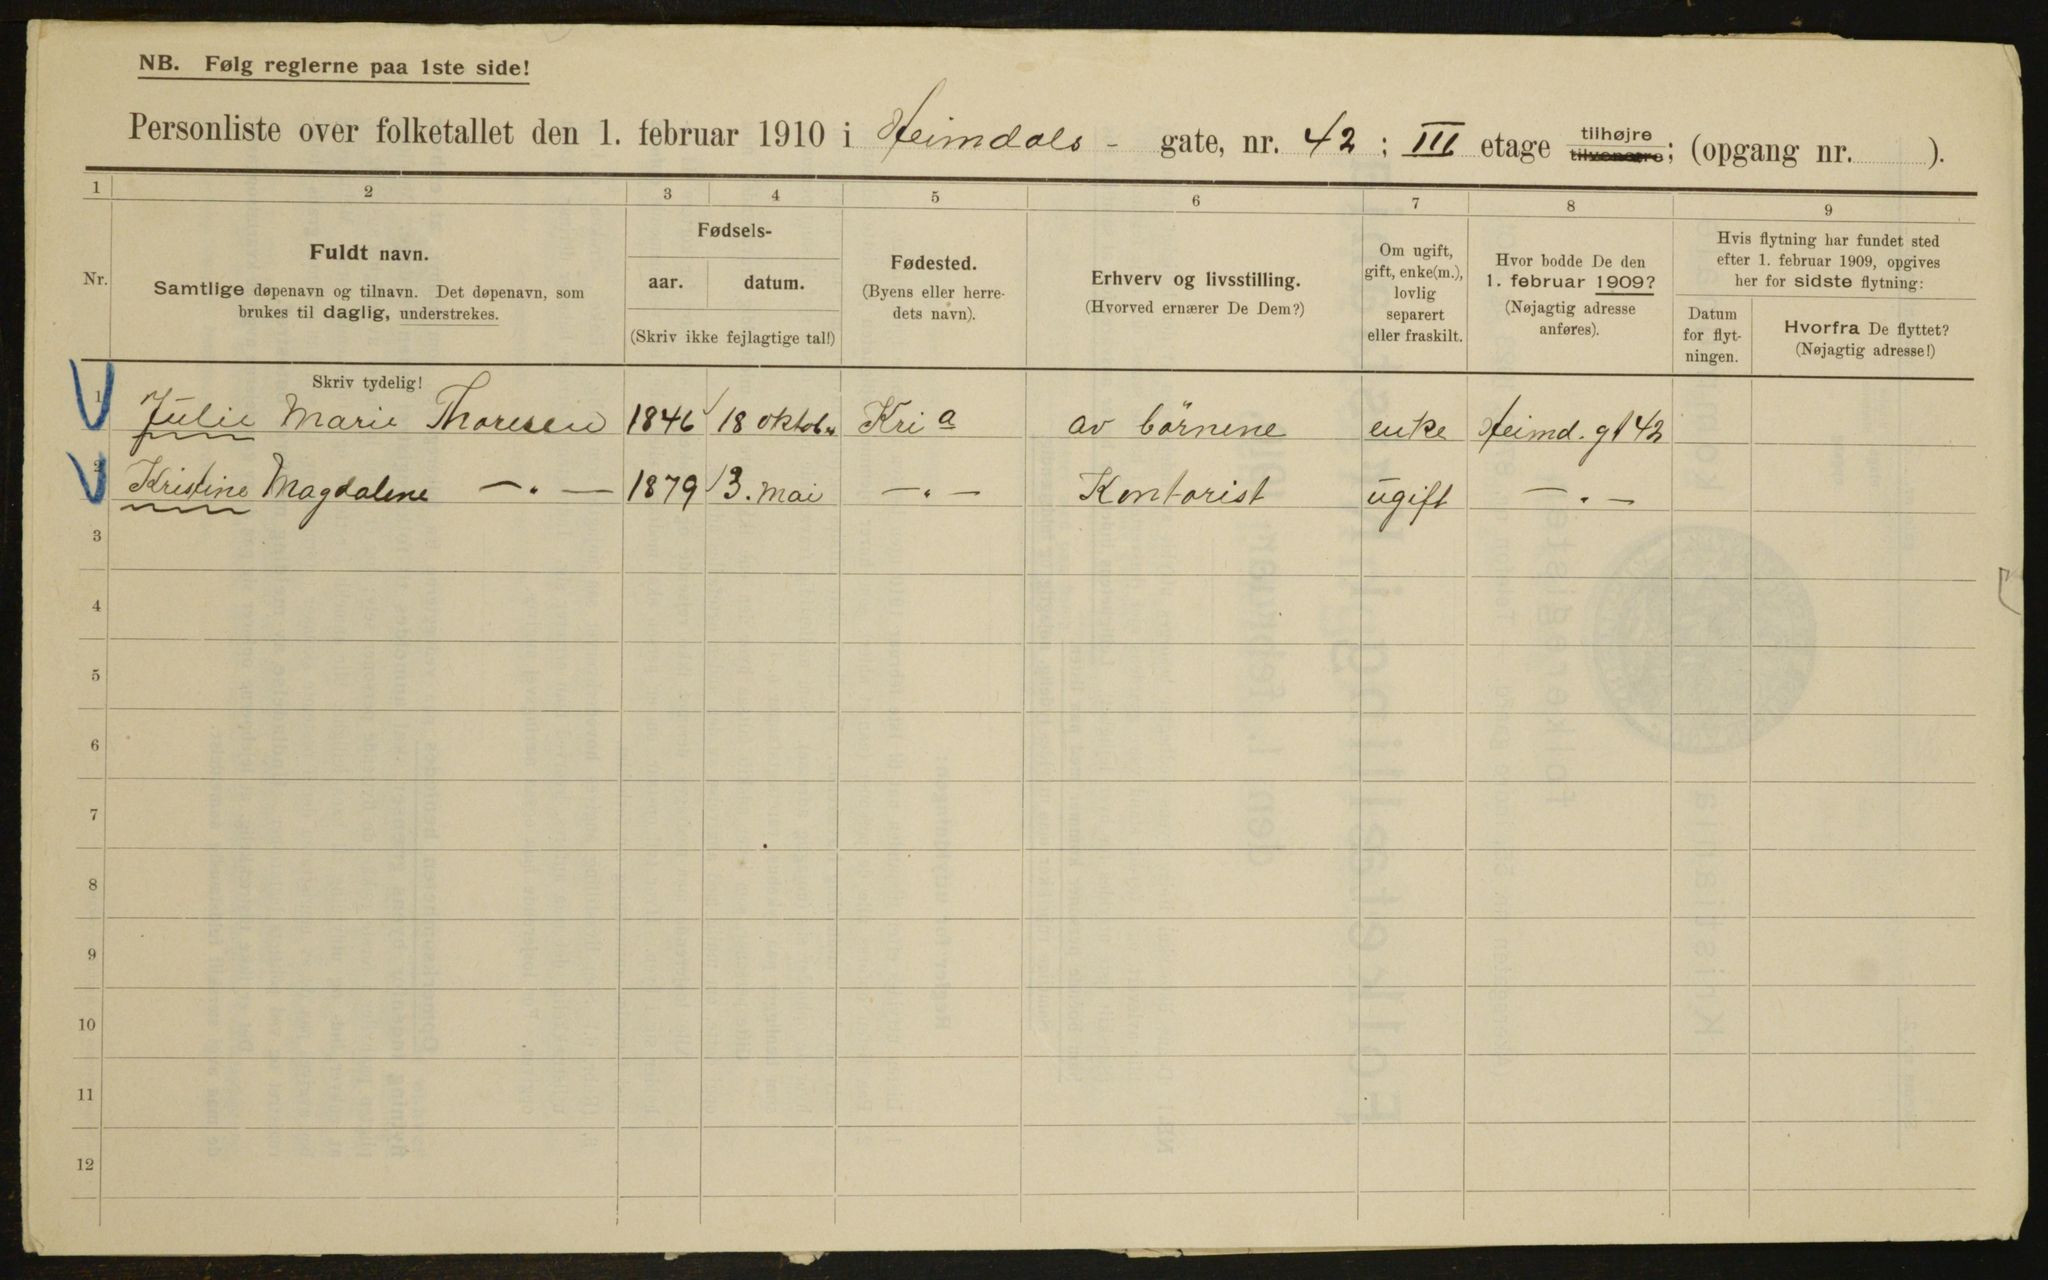 NB. Følg reglerne paa 1ste side!
Personliste over folketallet den 1. februar 1910 i Heimdals - gate, nr. 42 ; III etage tilhøjre tilvenstre; (opgang nr. ).
1 2 3 4 5 6 7 8 9
Nr.
Fuldt navn.
Samtlige døpenavn og tilnavn. Det døpenavn, som
brukes til daglig, understrekes.
Fødsels-
aar. datum.
(Skriv ikke fejlagtige tal!)
Fødested.
(Byens eller herre-
dets navn).
Erhverv og livsstilling.
(Hvorved ernærer De Dem?)
Om ugift,
gift, enke(m.),
lovlig
separert
eller fraskilt.
Hvor bodde De den
1. februar 1909?
(Nøjagtig adresse
anføres).
Hvis flytning har fundet sted
efter 1. februar 1909, opgives
her for sidste flytning:
Datum
for flyt-
ningen.
Hvorfra De flyttet?
(Nøjagtig adresse!)
Skriv tydelig!
1 Julie Marie Thoresen 1846 18 oktob. Kria av börnene enke Heimd. gt 42
2 Kristine Magdalene —„— 1879 3. mai —„— Kontorist ugift —„—
3
4
5
6
7
8
9
10
11
12